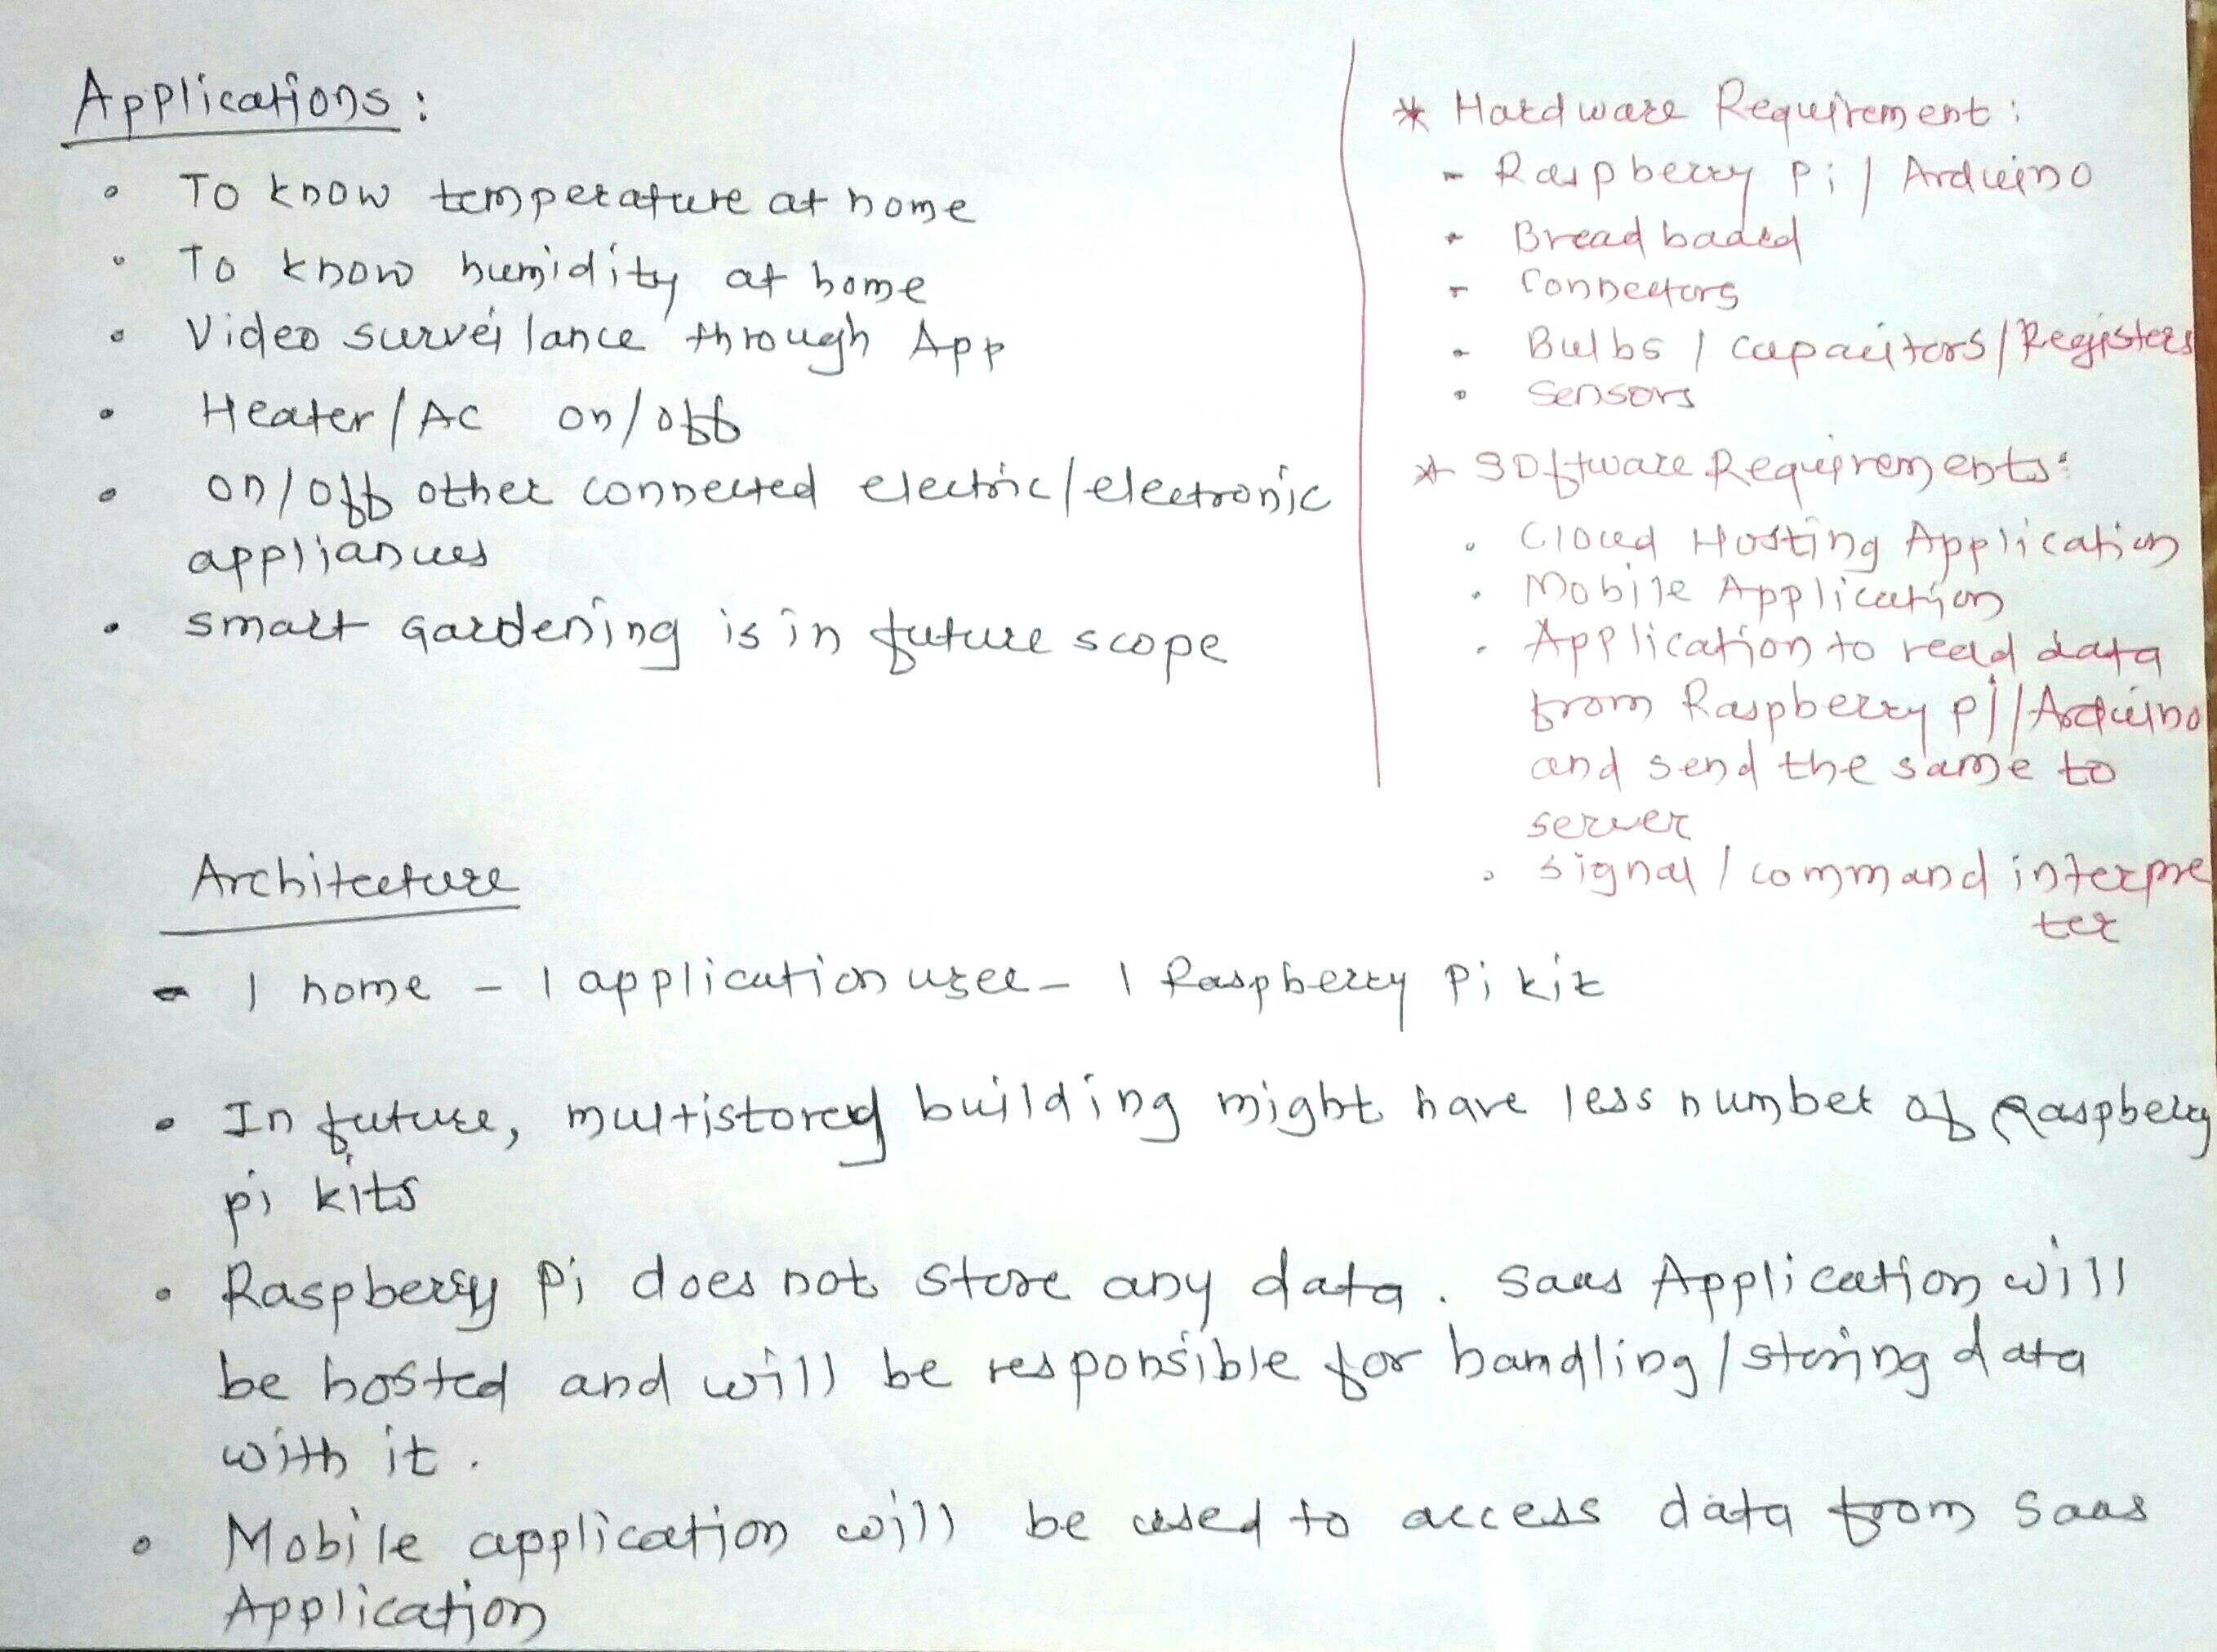 Applications :
• To know temperature at home
• To know humidity at home
• Video surveilance through App
• Heater/AC on/off
• on/off other connected electric/electronic
appliances
• smart Gardening is in future scope
* Hardware Requirement :
- Raspberry Pi / Arduino
• Bread baord
- Connectors
• Bulbs / capacitors/Registers
• Sensors
* Software Requirements:
• Cloud Hosting Application
• Mobile Application
• Application to read data
from Raspberry pi//Arduino
and send the same to
server
• signal / command interpre
ter
Architecture
- 1 home - 1 application user - 1 Raspberry Pi kit
• In future, multistored building might have less number of Raspberry
pi kits
• Raspberry Pi does not store any data. Saas Application will
be hosted and will be responsible for handling/storing data
with it.
• Mobile application will be used to access data from Saas
Application